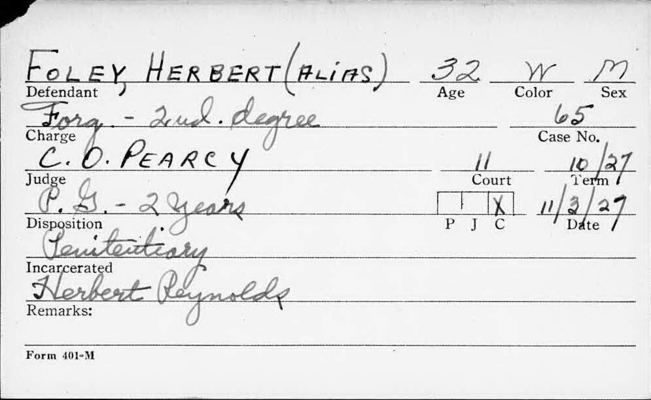 FOLEY, HERBERT (ALIAS) 32 W M
Defendant Age Color Sex
Forg. - 2nd. degree 65
Charge Case No.
C. O. PEARCY 11 10/27
Judge Court Term
P. G. - 2 years X 11/3/27
Disposition P J C Date
Penitentiary
Incarcerated
Herbert Reynolds
Remarks:
Form 401-M